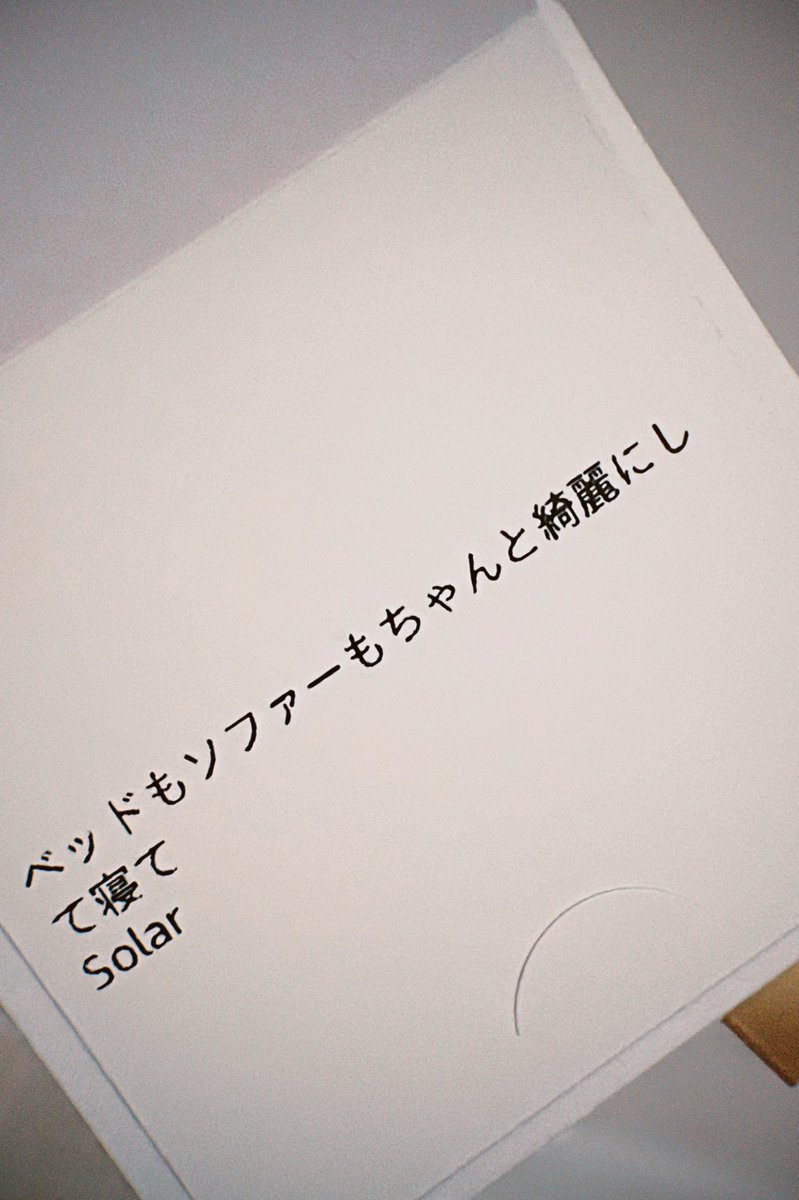 ベッドもソファーもちゃんと綺麗にし
て寝て
Solar